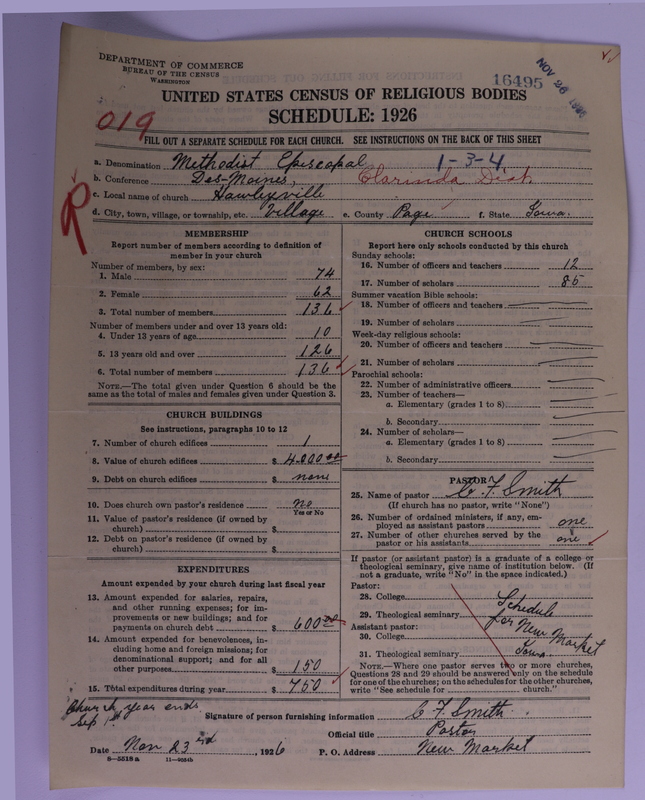 DEPARTMENT OF COMMERCE
BUREAU OF THE CENSUS
WASHINGTON
16495
NOV 26
UNITED STATES CENSUS OF RELIGIOUS BODIES
SCHEDULE: 1926
019
FILL OUT A SEPARATE SCHEDULE FOR EACH CHURCH. SEE INSTRUCTIONS ON THE BACK OF THIS SHEET
a. Denomination Methodist Episcopal 1-3-4
b. Conference Des-Moines, Clarinda Dist
c. Local name of church Hawleyville
d. City, town, village, or township, etc. Village e. County Page f. State Iowa.
R
MEMBERSHIP
Report number of members according to definition of member in your church
Number of members, by sex:
1. Male 74
2. Female 62
3. Total number of members 136
Number of members under and over 13 years old:
4. Under 13 years of age 10
5. 13 years old and over 126
6. Total number of members 136
NOTE.—The total given under Question 6 should be the same as the total of males and females given under Question 3.
CHURCH BUILDINGS
See instructions, paragraphs 10 to 12
7. Number of church edifices 1
8. Value of church edifices $ 4000.00
9. Debt on church edifices $ none
10. Does church own pastor's residence? no
Yes or No
11. Value of pastor's residence (if owned by church) $
12. Debt on pastor's residence (if owned by church) $
EXPENDITURES
Amount expended by your church during last fiscal year
13. Amount expended for salaries, repairs, and other running expenses; for improvements or new buildings; and for payments on church debt $ 600.00
14. Amount expended for benevolences, including home and foreign missions; for denominational support; and for all other purposes $ 150
15. Total expenditures during year $ 750
CHURCH SCHOOLS
Report here only schools conducted by this church
Sunday schools:
16. Number of officers and teachers 12
17. Number of scholars 85
Summer vacation Bible schools:
18. Number of officers and teachers
19. Number of scholars
Week-day religious schools:
20. Number of officers and teachers
21. Number of scholars
Parochial schools:
22. Number of administrative officers
23. Number of teachers—
a. Elementary (grades 1 to 8)
b. Secondary
24. Number of scholars—
a. Elementary (grades 1 to 8)
b. Secondary
PASTOR
25. Name of pastor C. F. Smith
(If church has no pastor, write "None")
26. Number of ordained ministers, if any, employed as assistant pastors one
27. Number of other churches served by the pastor or his assistants one
If pastor (or assistant pastor) is a graduate of a college or theological seminary, give name of institution below. (If not a graduate, write "No" in the space indicated.)
Pastor:
28. College
29. Theological seminary
Assistant pastor:
30. College
31. Theological seminary
Schedule
for New Market
Iowa
NOTE.—Where one pastor serves two or more churches, Questions 28 and 29 should be answered only on the schedule for one of the churches; on the schedules for the other churches, write "See schedule for church."
Church year ends
Sep 1st
Signature of person furnishing information C. F. Smith
Official title Pastor
Date Nov 23rd, 1926 P. O. Address New Market
8—5518a 11—9054b